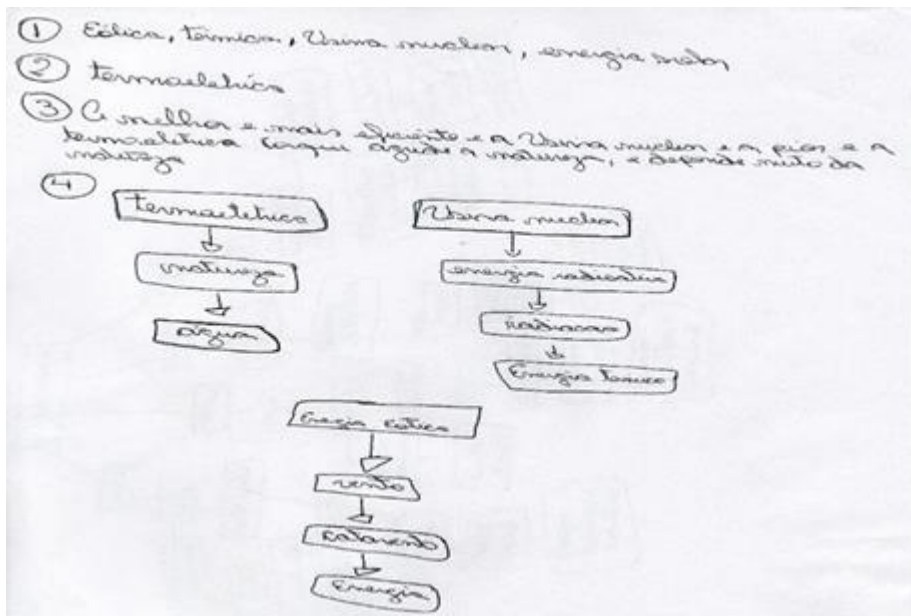 ① Eólica, térmica, Usina nuclear, energia solar
② termoeletrica
③ A melhor e mais eficiente e a Usina nuclear e a pior e a
termoeletrica porque agride a natureza, e depende muito da
natureza
④
termoeletrica
natureza
água
Usina nuclear
energia radioativa
Radiacao
Energia termica
Energia eolica
vento
catavento
Energia